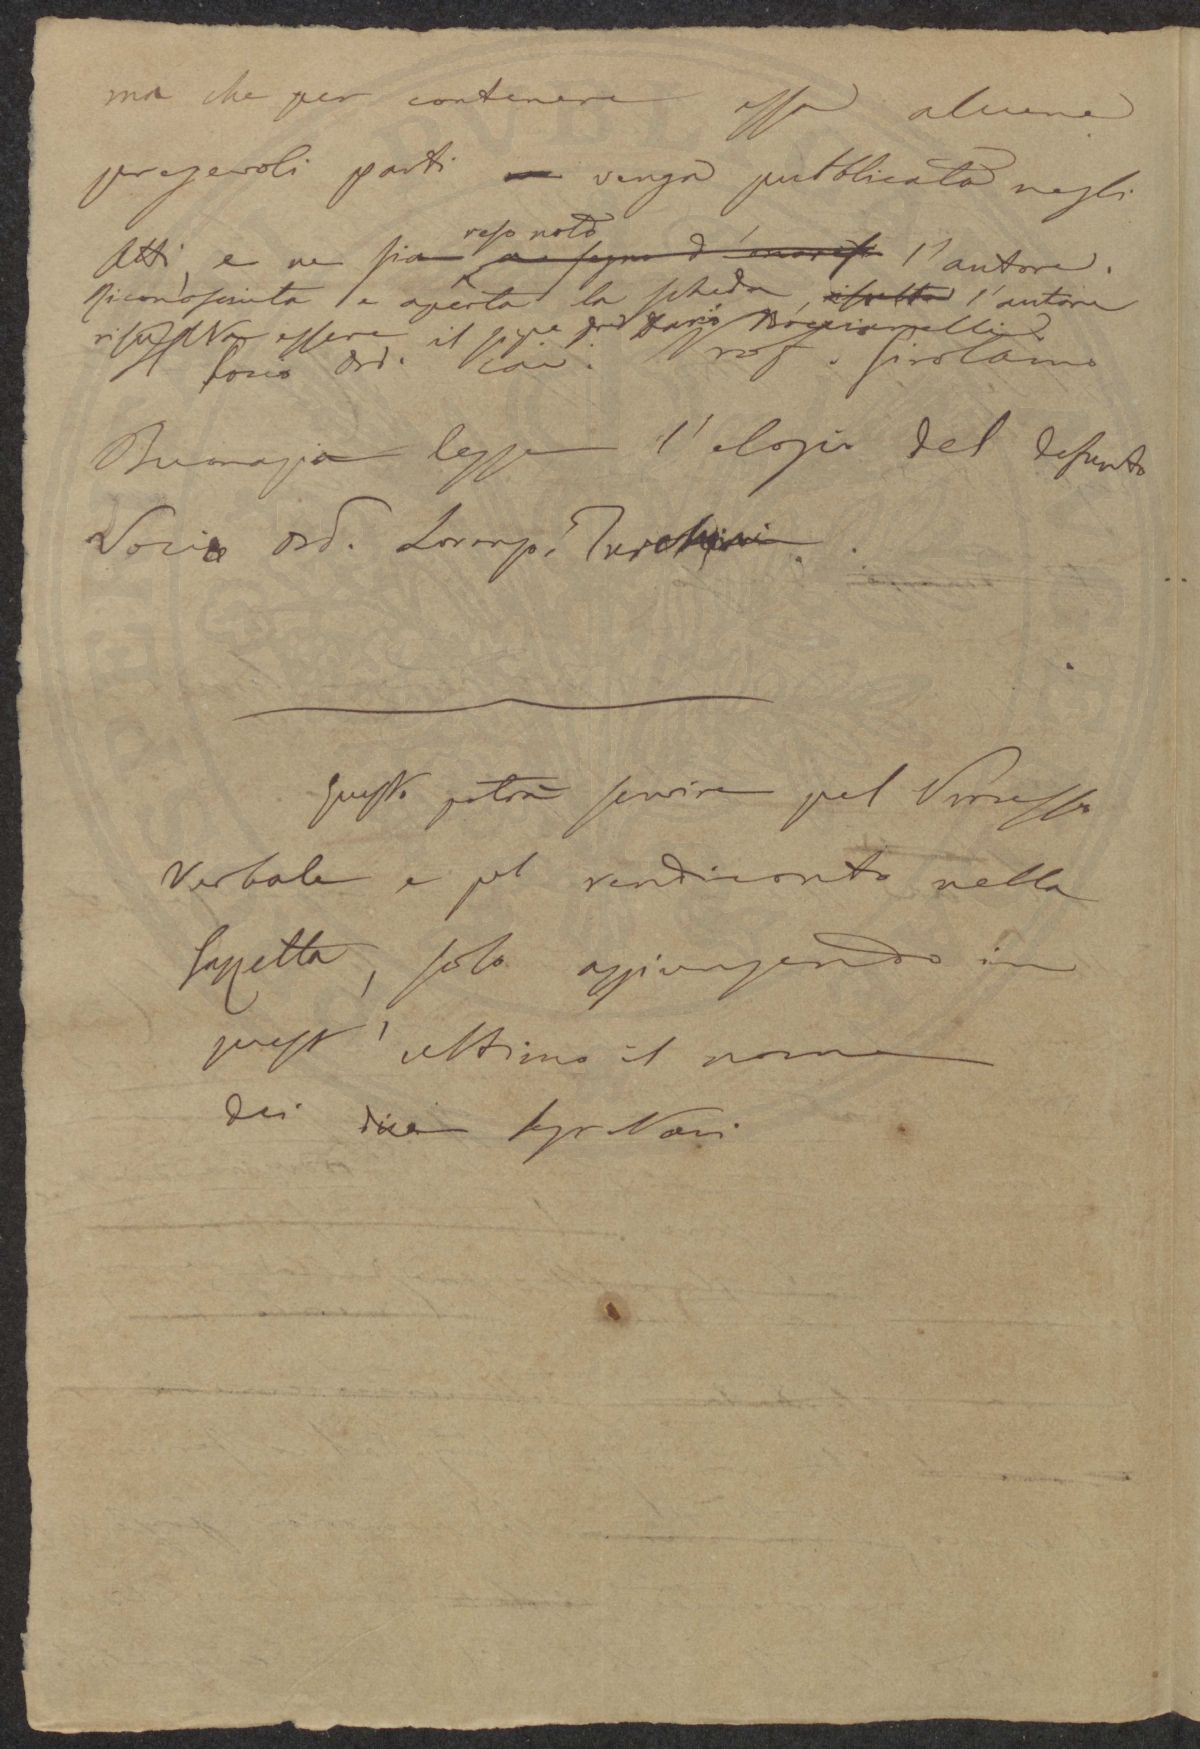 ma che per contenere essa alcune
pregevoli parti venga pubblicata negli
reso noto
Atti, e ne sia a segno d'onore l'autore.
Riconosciuta e aperta la scheda, l'autore
essere il sig.
Socio Ord. Cav. Prof. Girolamo
Buonazia legge l'elogio del defunto
Socio Ord. Lorenzo Turchini.
Questo potrà servire pel Processo
Verbale e pel rendiconto nella
Gazzetta, solo aggiungendo in
quest'ultimo il nome
dei